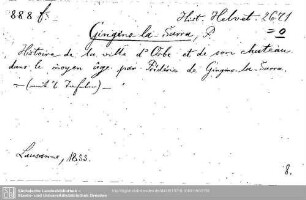 888 f
Hist. Helvet. 2671
Gingins-la-Sarra, F
Histoire de la ville d'Orbe et de son chateau
dans le moyen âge par Frédéric de Gingins-la-Sarra.
Lausanne, 1855.
8.
Sächsische Landesbibliothek -
Staats- und Universitätsbibliothek Dresden